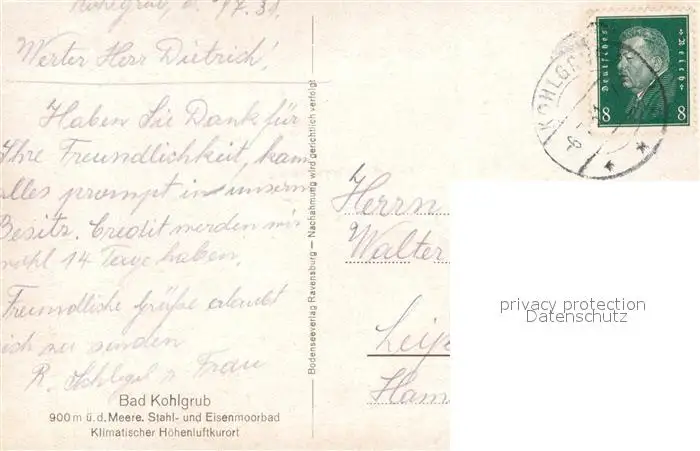 Kohlgrub, d. 17.7.31.
Werter Herr Dietrich!
Haben Sie Dank für
Ihre Freundlichkeit, kam
alles prompt in unsern
Besitz. Credit werden wir
wohl 14 Tage haben.
Freundliche Grüße erlaubt
sich zu senden
R. Schlegel u. Frau
Bad Kohlgrub
900 m ü. d. Meere. Stahl- und Eisenmoorbad
Klimatischer Höhenluftkurort
Bodenseeverlag Ravensburg — Nachahmung wird gerichtlich verfolgt
Deutsches Reich
8 8
KOHLGR
Herrn
Walter
Leip
Ham
privacy protection
Datenschutz